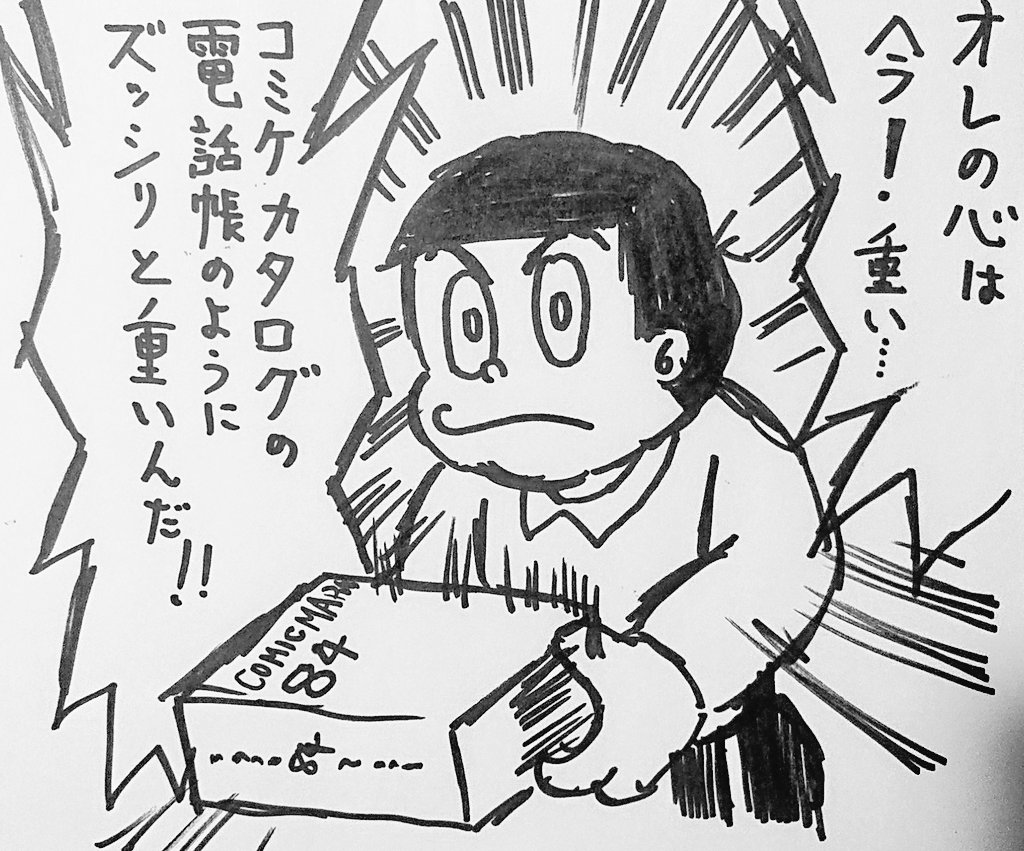 オレの心は
今!・重い…
コミケカタログの
電話帳のように
ズッシリと重いんだ!!
COMICMARK
84
84
6